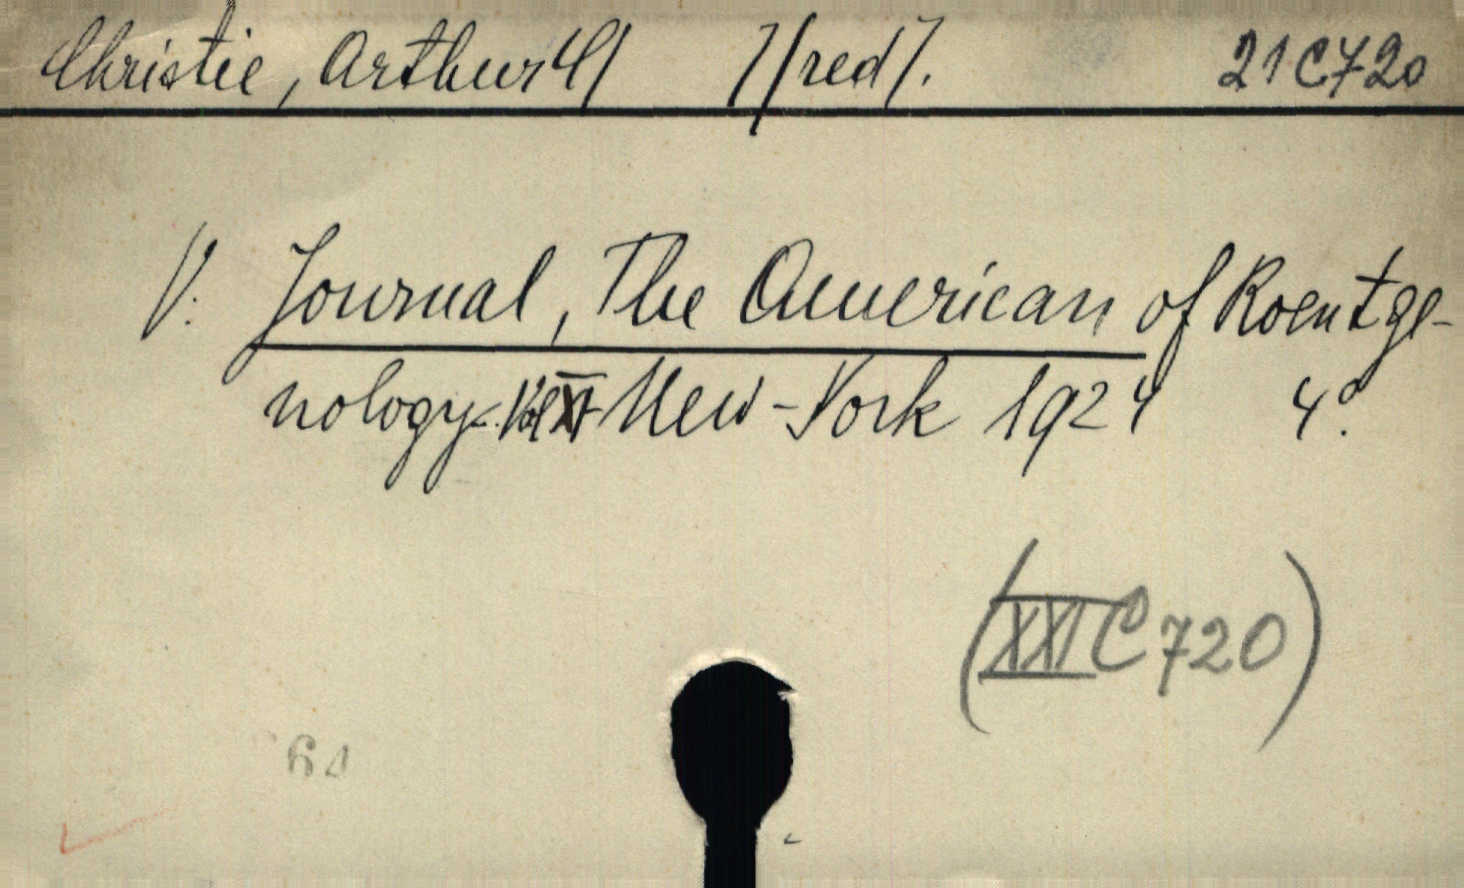 Christie, Arthur C/ /(red/. 21 C 720
V. Journal, The American of Roentge-
nology. Vol XI New-York 1924 4°.
(XXI C 720)